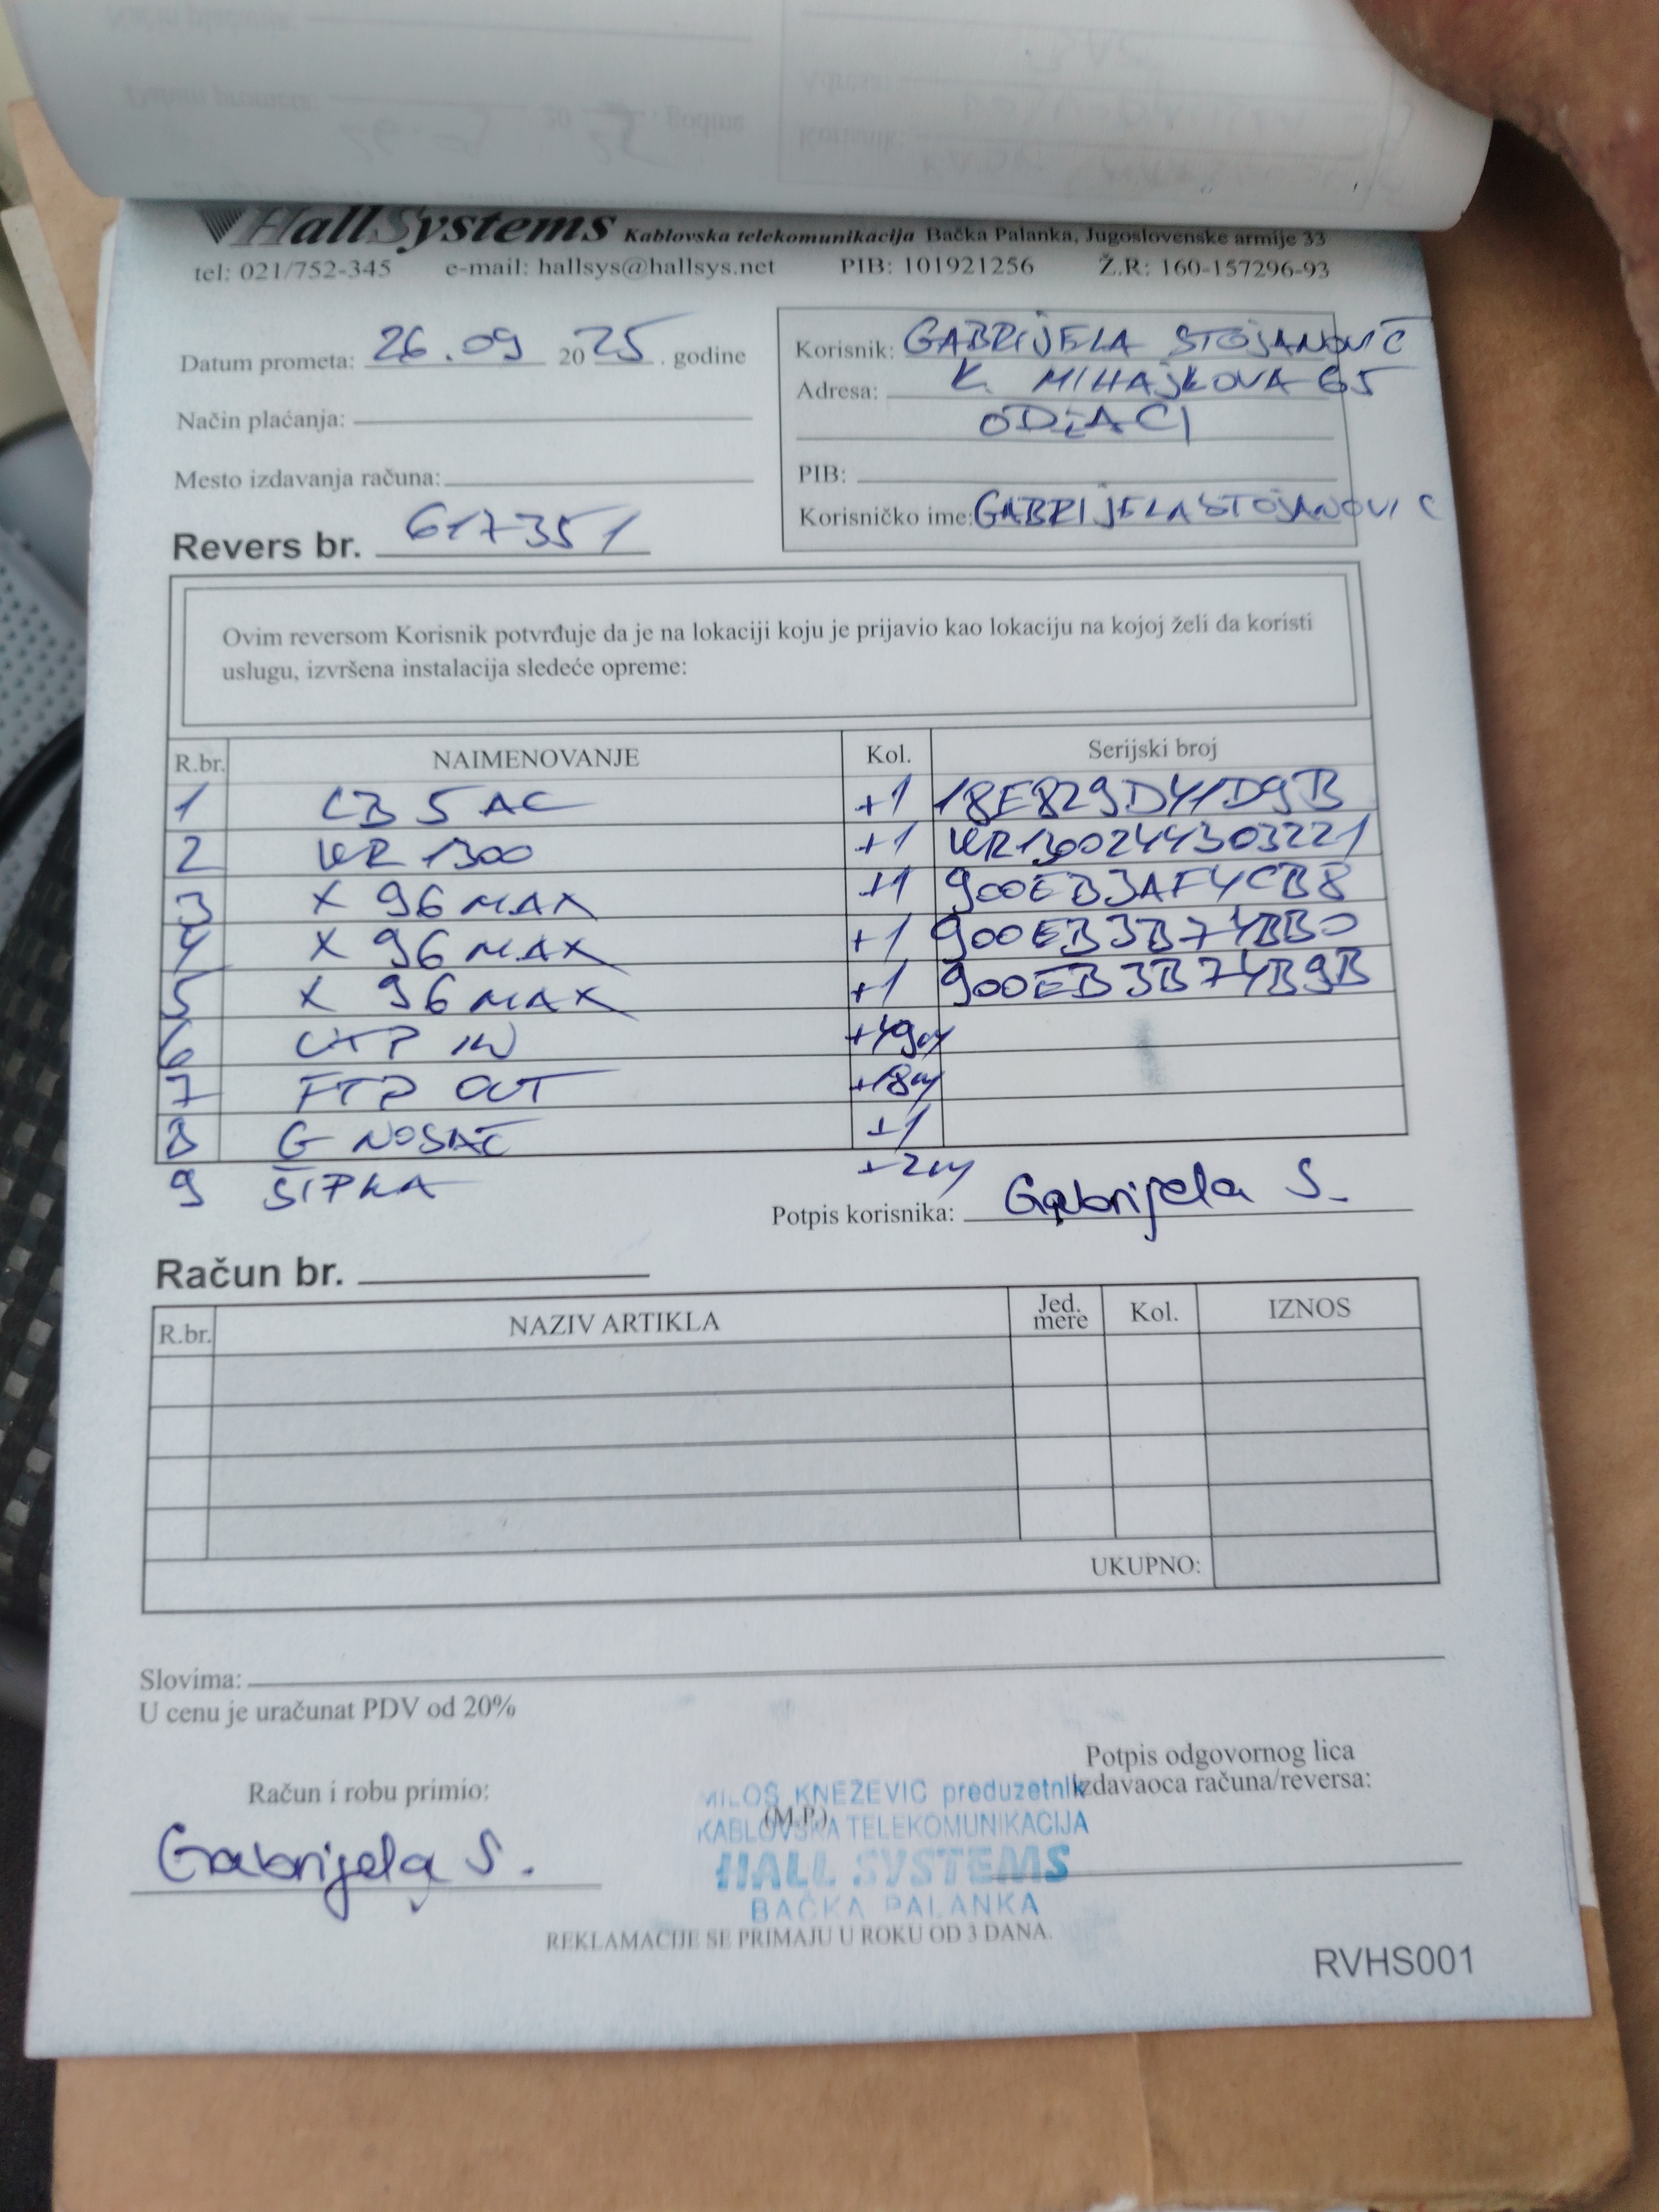 HallSystems Kablovska telekomunikacija Bačka Palanka, Jugoslovenske armije 33
tel: 021/752-345 e-mail: hallsys@hallsys.net PIB: 101921256 Ž.R: 160-157296-93
Datum prometa: 26.09 2025. godine
Način plaćanja:
Mesto izdavanja računa:
Revers br. 617351
Korisnik: GABRIJELA STOJANOVIĆ
Adresa: K. MIHAJLOVA 65
ODŽACI
PIB:
Korisničko ime: GABRIJELASTOJANOVIC
Ovim reversom Korisnik potvrđuje da je na lokaciji koju je prijavio kao lokaciju na kojoj želi da koristi
uslugu, izvršena instalacija sledeće opreme:
R.br. NAIMENOVANJE Kol. Serijski broj
1 LB 5 AC +1 18E829D41D9B
2 KR 1300 +1 KR1300244303221
3 X 96 MAX +1 900EB3AF4CB8
4 X 96 MAX +1 900EB3B74BB0
5 X 96 MAX +1 900EB3B74B9B
6 UTP IN +49m
7 FTP OUT +18m
8 G NOSAČ +1
9 ŠIPKA +2m
Potpis korisnika: Gabrijela S.
Račun br.
R.br. NAZIV ARTIKLA Jed. mere Kol. IZNOS
UKUPNO:
Slovima:
U cenu je uračunat PDV od 20%
Račun i robu primio:
Gabrijela S.
MILOŠ KNEŽEVIĆ preduzetnik
(M.P.)
KABLOVSKA TELEKOMUNIKACIJA
HALL SYSTEMS
BAČKA PALANKA
Potpis odgovornog lica
izdavaoca računa/reversa:
REKLAMACIJE SE PRIMAJU U ROKU OD 3 DANA.
RVHS001